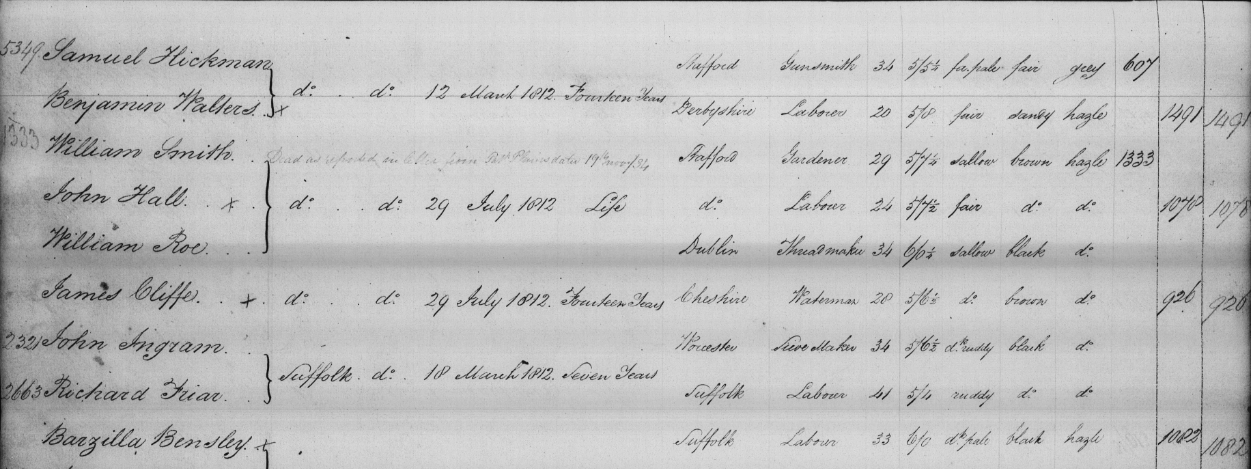 5349. Samuel Hickman Stafford Gunsmith 34 5/5½ fr. pale fair grey 607
} do. . do. 12 March 1812. Fourteen Years
Benjamin Walters. x Derbyshire Labourer 20 5/8 fair sandy hazle 1491 1491
1333 William Smith. Dead as reported in Stafford Gardener 29 sallow brown hazle 1333
John Hall. . x . } do. . do. 29 July 1812 Life do. Labour 24 5/7½ fair do. do. 1078 1078
William Roe. . Dublin Threadmaker 34 6/0½ sallow black do.
James Cliffe. . x . do. do. 29 July 1812. Fourteen Years Cheshire Waterman 28 5/6½ do. brown do. 926 926
2321 John Ingram. . Worcester Sieve Maker 34 5/6½ dk. ruddy black do.
} Suffolk. do. . 18 March 1812. Seven Years
2663 Richard Friar. . Suffolk Labour 41 5/4 ruddy do. do.
Barzilla Bensley. x Suffolk Labour 33 6/0 dk. pale black hazle 1082 1082